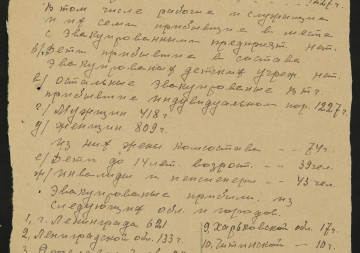 1227г.
В том числе рабочие и служащие
и их семьи прибывшие в места
с эвакуированным предприят. нет.
б/ Дети прибывшие в составе
эвакуированых детских учреж. нет.
в/ остальные эвакуированые в т.ч.
прибывшие индивидуальном пор. 1227г.
г/ Мужчин 418г.
д/ женщин 809г.
из них жены комсостава -- 74г.
е/ Дети до 14 лет. возраст. -- 39 чел.
ж/ инвалиды и пенсионеры -- 43 чел.
Эвакуированые прибыли из
следующих обл. и городов.
1, г. Ленинграда 621
2, Ленинградской обл. 133г.
9, Харьковской обл. 17ч.
10, Читинской -- 10ч.